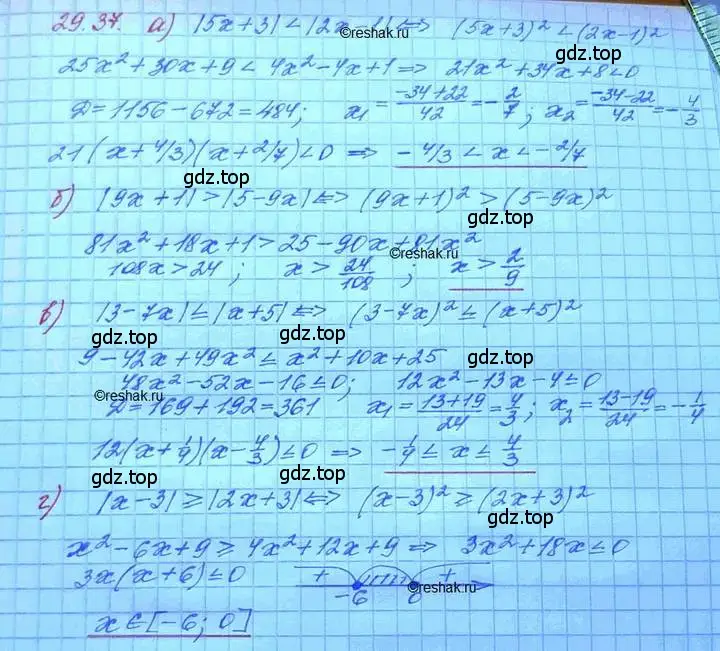 29.37. а) |5x+3| < |2x-1| <=> (5x+3)² < (2x-1)²
©reshak.ru
gdz.top
25x²+30x+9 < 4x²-4x+1 => 21x²+34x+8<0
D=1156-672=484; x₁=(-34+22)/42=-2/7; x₂=(-34-22)/42=-4/3
21(x+4/3)(x+2/7)<0 => -4/3 < x < -2/7
gdz.top
gdz.top
б) |9x+1| > |5-9x| <=> (9x+1)² > (5-9x)²
gdz.top
81x²+18x+1 > 25-90x+81x²
©reshak.ru
108x > 24; x > 24/108; x > 2/9
gdz.top
в) |3-7x| ≤ |x+5| <=> (3-7x)² ≤ (x+5)²
gdz.top
gdz.top
9-42x+49x² ≤ x²+10x+25
48x²-52x-16≤0; 12x²-13x-4≤0
©reshak.ru
D=169+192=361 x₁=(13+19)/24=4/3; x₂=(13-19)/24=-1/4
gdz.top
12(x+1/4)(x-4/3)≤0 => -1/4 ≤ x ≤ 4/3
gdz.top
г) |x-3| ≥ |2x+3| <=> (x-3)² ≥ (2x+3)²
gdz.top
x²-6x+9 ≥ 4x²+12x+9 => 3x²+18x≤0
3x(x+6)≤0 + +
-6 0
©reshak.ru
x∈[-6; 0]
gdz.top